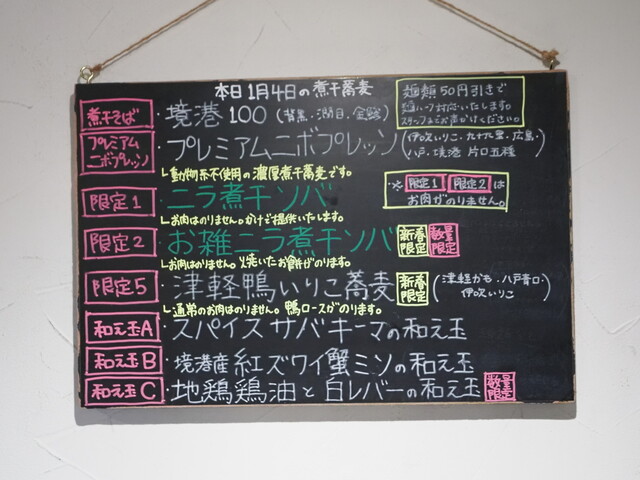 本日1月4日の煮干蕎麦
麺類50円引きで
麺ハーフ対応いたします。
スタッフまでお声かけください。
煮干そば ・境港100 (背黒・潤目・
プレミアムニボプレッソ ・プレミアムニボプレッソ (伊吹いりこ・九十九里・広島・八戸・境港 片口五種)
└動物系不使用の濃厚煮干蕎麦です。
※限定1 限定2は
お肉がのりません。
限定1 ・ニラ煮干ソバ
└お肉はのりません。かけで提供いたします。
限定2 ・お雑ニラ煮干ソバ 新春限定 数量限定
└お肉はのりません。焼いたお餅がのります。
限定5 ・津軽鴨いりこ蕎麦 新春限定 (津軽かも・八戸青口・伊吹いりこ)
└通常のお肉はのりません。鴨ロースがのります。
和え玉A ・スパイスサバキーマの和え玉
和え玉B ・境港産紅ズワイ蟹ミソの和え玉
和え玉C ・地鶏鶏油と白レバーの和え玉 数量限定